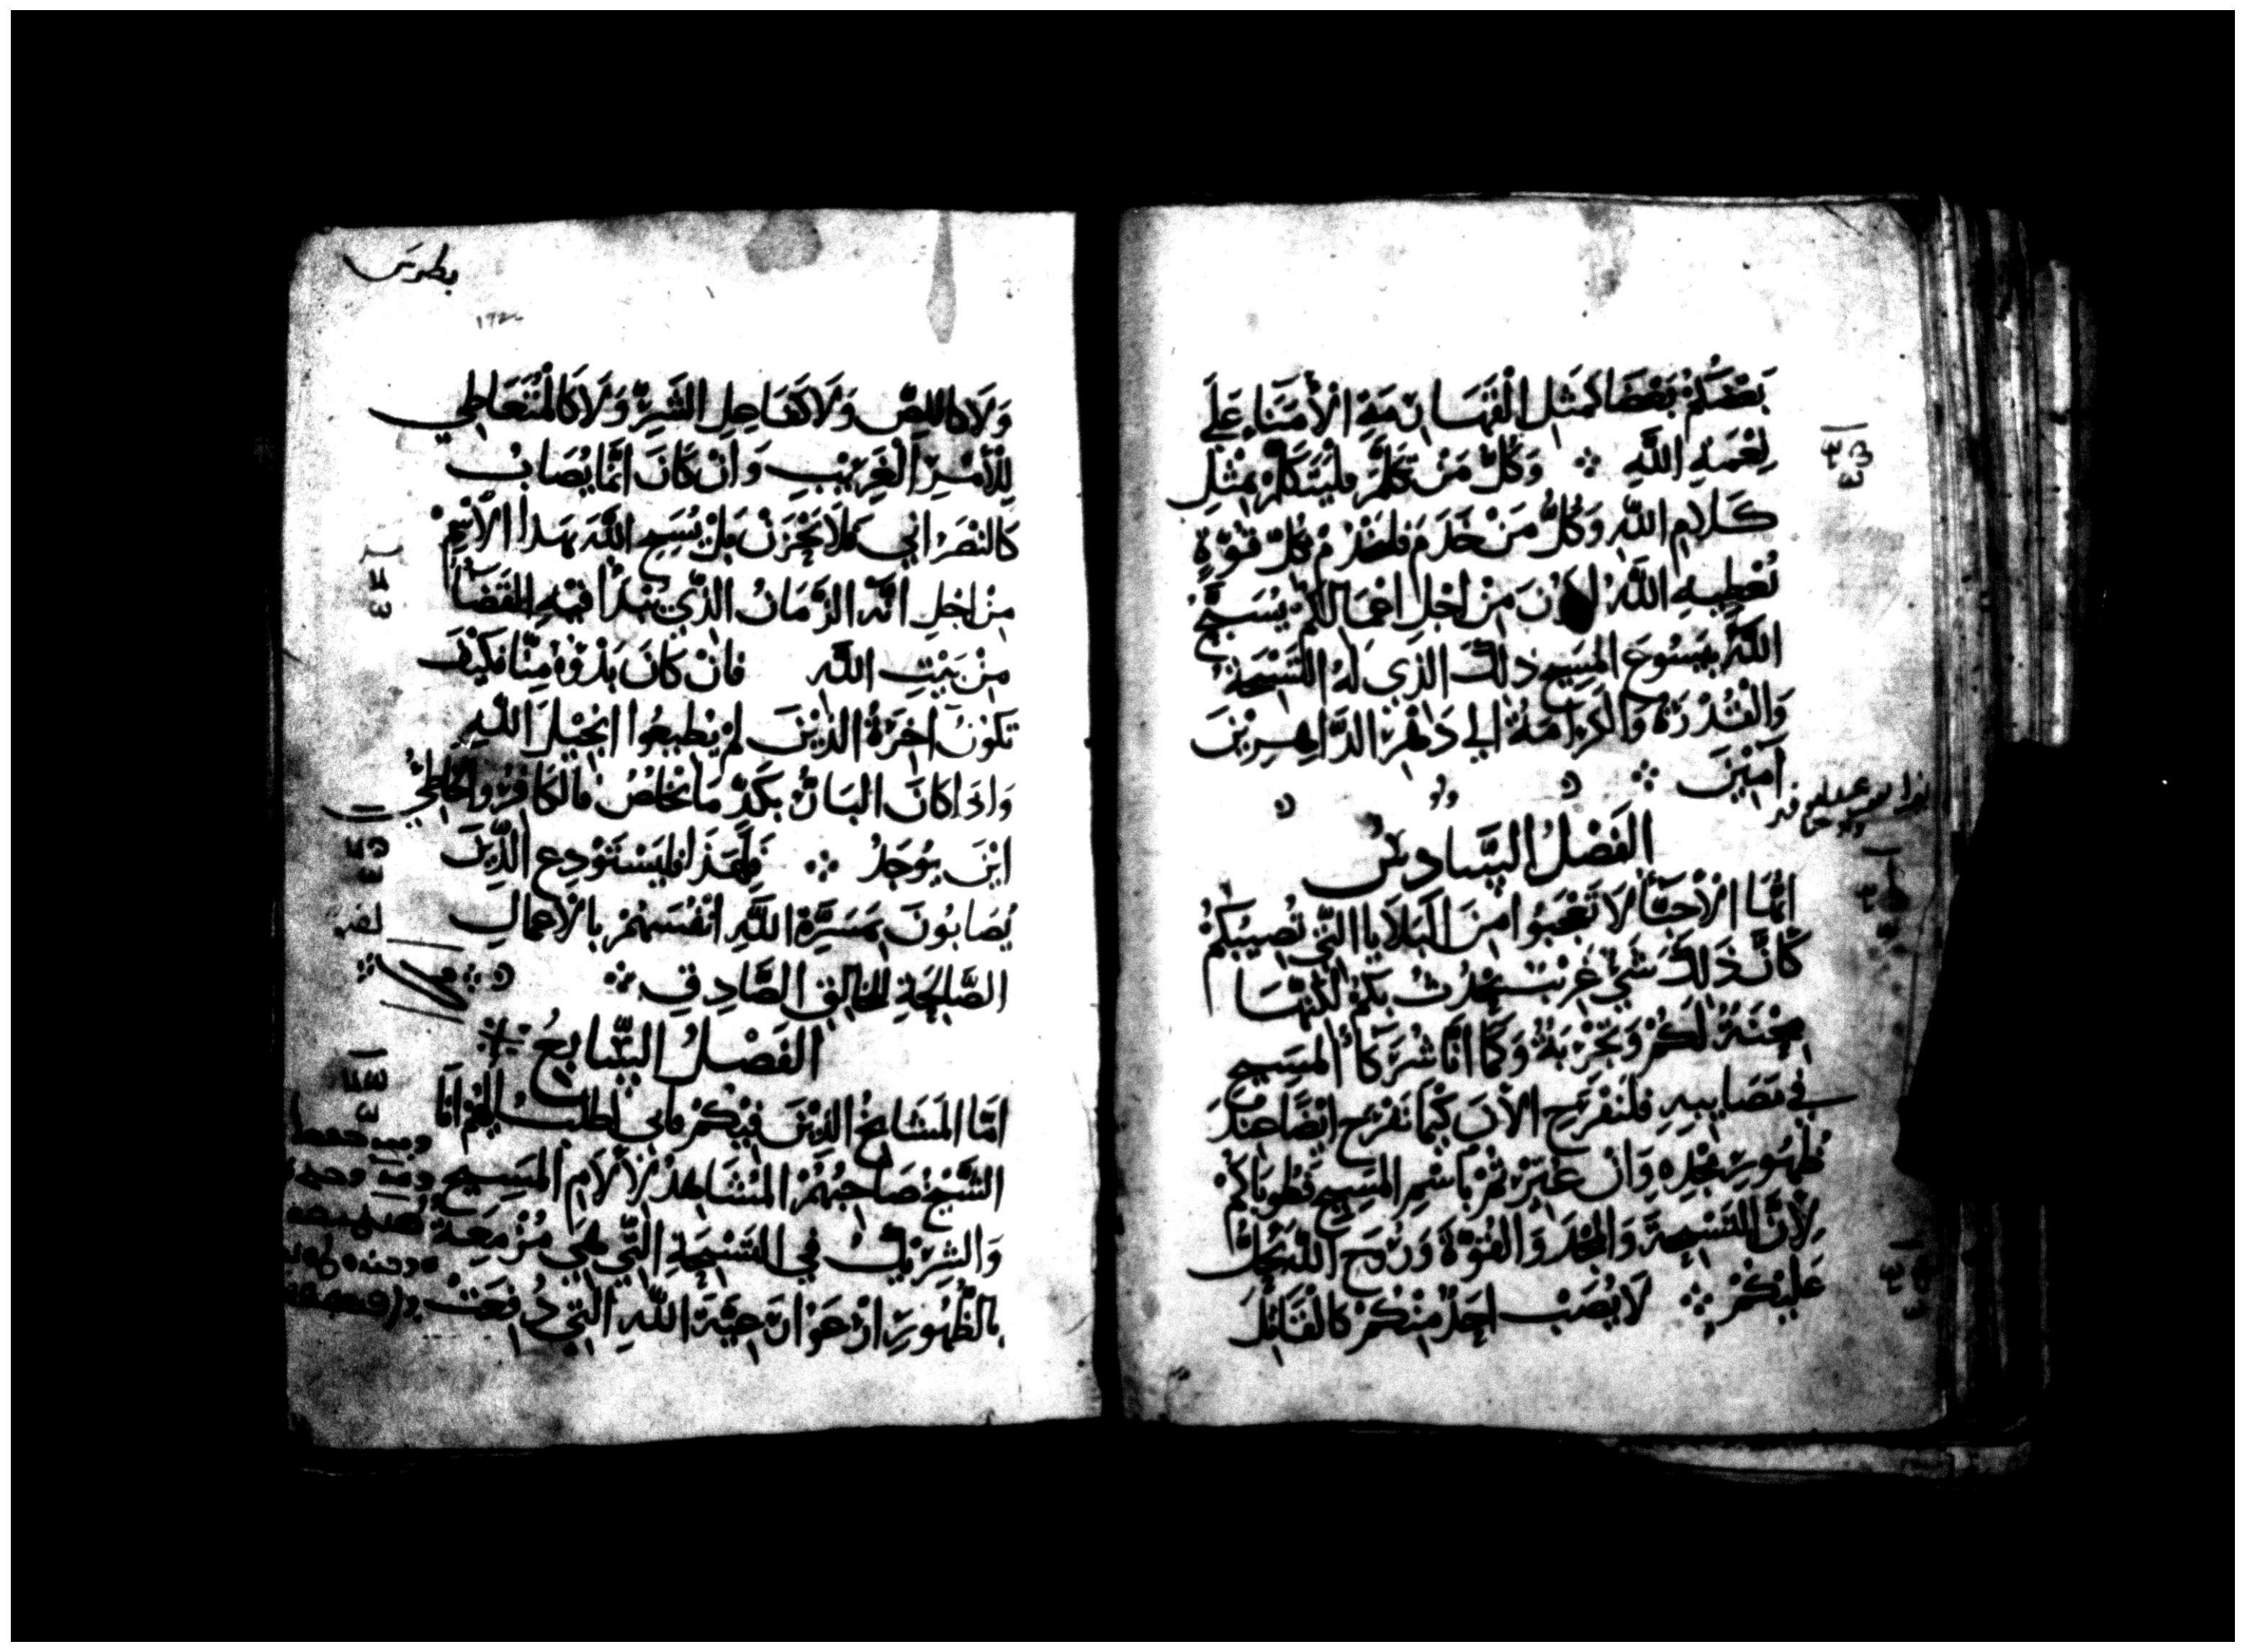 بَعْضُكُمْ بَعْضًا كمَثِلِ القَهَارِمَةِ الأُمَنَاءِ عَلَي
نِعْمَةِ اللَّهِ ⁘ وَكُلُّ مَنْ تَكَلَّمَ فليَتَكَلَّمْ بمْثِلِ
كَلَامِ اللَّهِ وَكُلُّ مَنْ خَدَمَ فلىخْدُمْ بكُلِّ قُوَّةٍ
يُعْطِيهِ اللَّهُ لىكُونَ مِنْ اجْلِ اعْمَالكُمْ يُسَبَّحُ
اللَّهُ بيَسُوعَ المسَيحِ ذلكَ الذِي لهُ التَسْبِحَةُ
وَالقُدْرَةُ وَالْكَرَامَةُ الى دَهْرِ الدَّاهِرِيْنَ
آمِيْنَ ⁘
الفَصْلُ السَّادِسُ
ايُّهَا الأَحِبَّاءُ لَا تَعْجَبُوا مِنَ البَلَايَا التِّي تُصِيبُكُمْ
كَانَّ ذَلكَ شَيْ غَرِيْبٌ يَحْدُثُ بِكُمْ لَكنَّهَا
مِحْنَةٌ لَكُمْ وَتَجْرُبَةٌ وَكَمَا انَّا شُرَكَاءُ المسَيحِ
في مَصَايبِهِ فلنَفْرَحِ الأنَ كَيْمَا نَفْرَحَ ايْضًا عِنْدَ
ظُهُورِ مَجْدِهِ وَانْ عُيّرْتُمْ باسْمِ المسَيحِ فطُوبَاكُمْ
لِأَنَّ التَسْبِحَةَ وَالمَجْدَ وَالقُوَّةَ وَرُوحَ اللَّهِ تحِلُّ
عَليْكُمْ ⁘ لَا يُصَبْ احَدٌ مِنْكُمْ كَالقَاتِلِ
بطرس
وَلَا كاللصِّ وَلَا كفَاعِلِ الشَّرِّ وَلَا كَالمُتَعَاطِي
لِلْأَمْرِ الْغَرِيْبِ وَانْ كَانَ انَّمَا يُصَابُ
كَالنَصْرَانِي فَلَا يَحْزَنْ بَلْ يُسَبِحِ اللَّهَ بهَذا الأسْمِ
مِنْ اجْلِ انَّهُ الزَّمَانُ الذِّي يَبْدَأُ فيْهِ القَضَاءُ
مِنْ بَيْتِ اللَّهِ فانْ كَانَ بَدْوُهُ مِنَّا فكَيْفَ
تَكُوْنُ اخِرَةُ الذيْنَ لمْ يُطِيعُوا انجِيْلَ اللَّهِ
وَاذَا كَانَ البَارُّ بكَدٍّ مَا يَخْلصُ فالكَافرُ وَالخَاطِيُ
ايْنَ يُوجَدُ ⁘ فَلِهَذَا فليَسْتَوْدِعِ الذِّيْنَ
يُصَابُونَ بمَسَرَّةِ اللَّهِ انْفُسَهُمْ بالأعْمَالِ
الصَّالِحَةِ للخَالِقِ الصَّادِقِ ⁘
الفَصْلُ السَّابِعُ
امَّا المَشَايخُ الذِيْنَ فيْكُمْ فاني اطلُبُ اليْهُمْ انَا
الشَّيْخُ صَاحِبُهُمُ المُشَاهِدُ لألَامِ المَسِيحِ
وَالشِرِيْكُ في التَسْبِحَةِ التِّي هيَ مُزْمِعَةٌ
بالظُهُورِ انْ